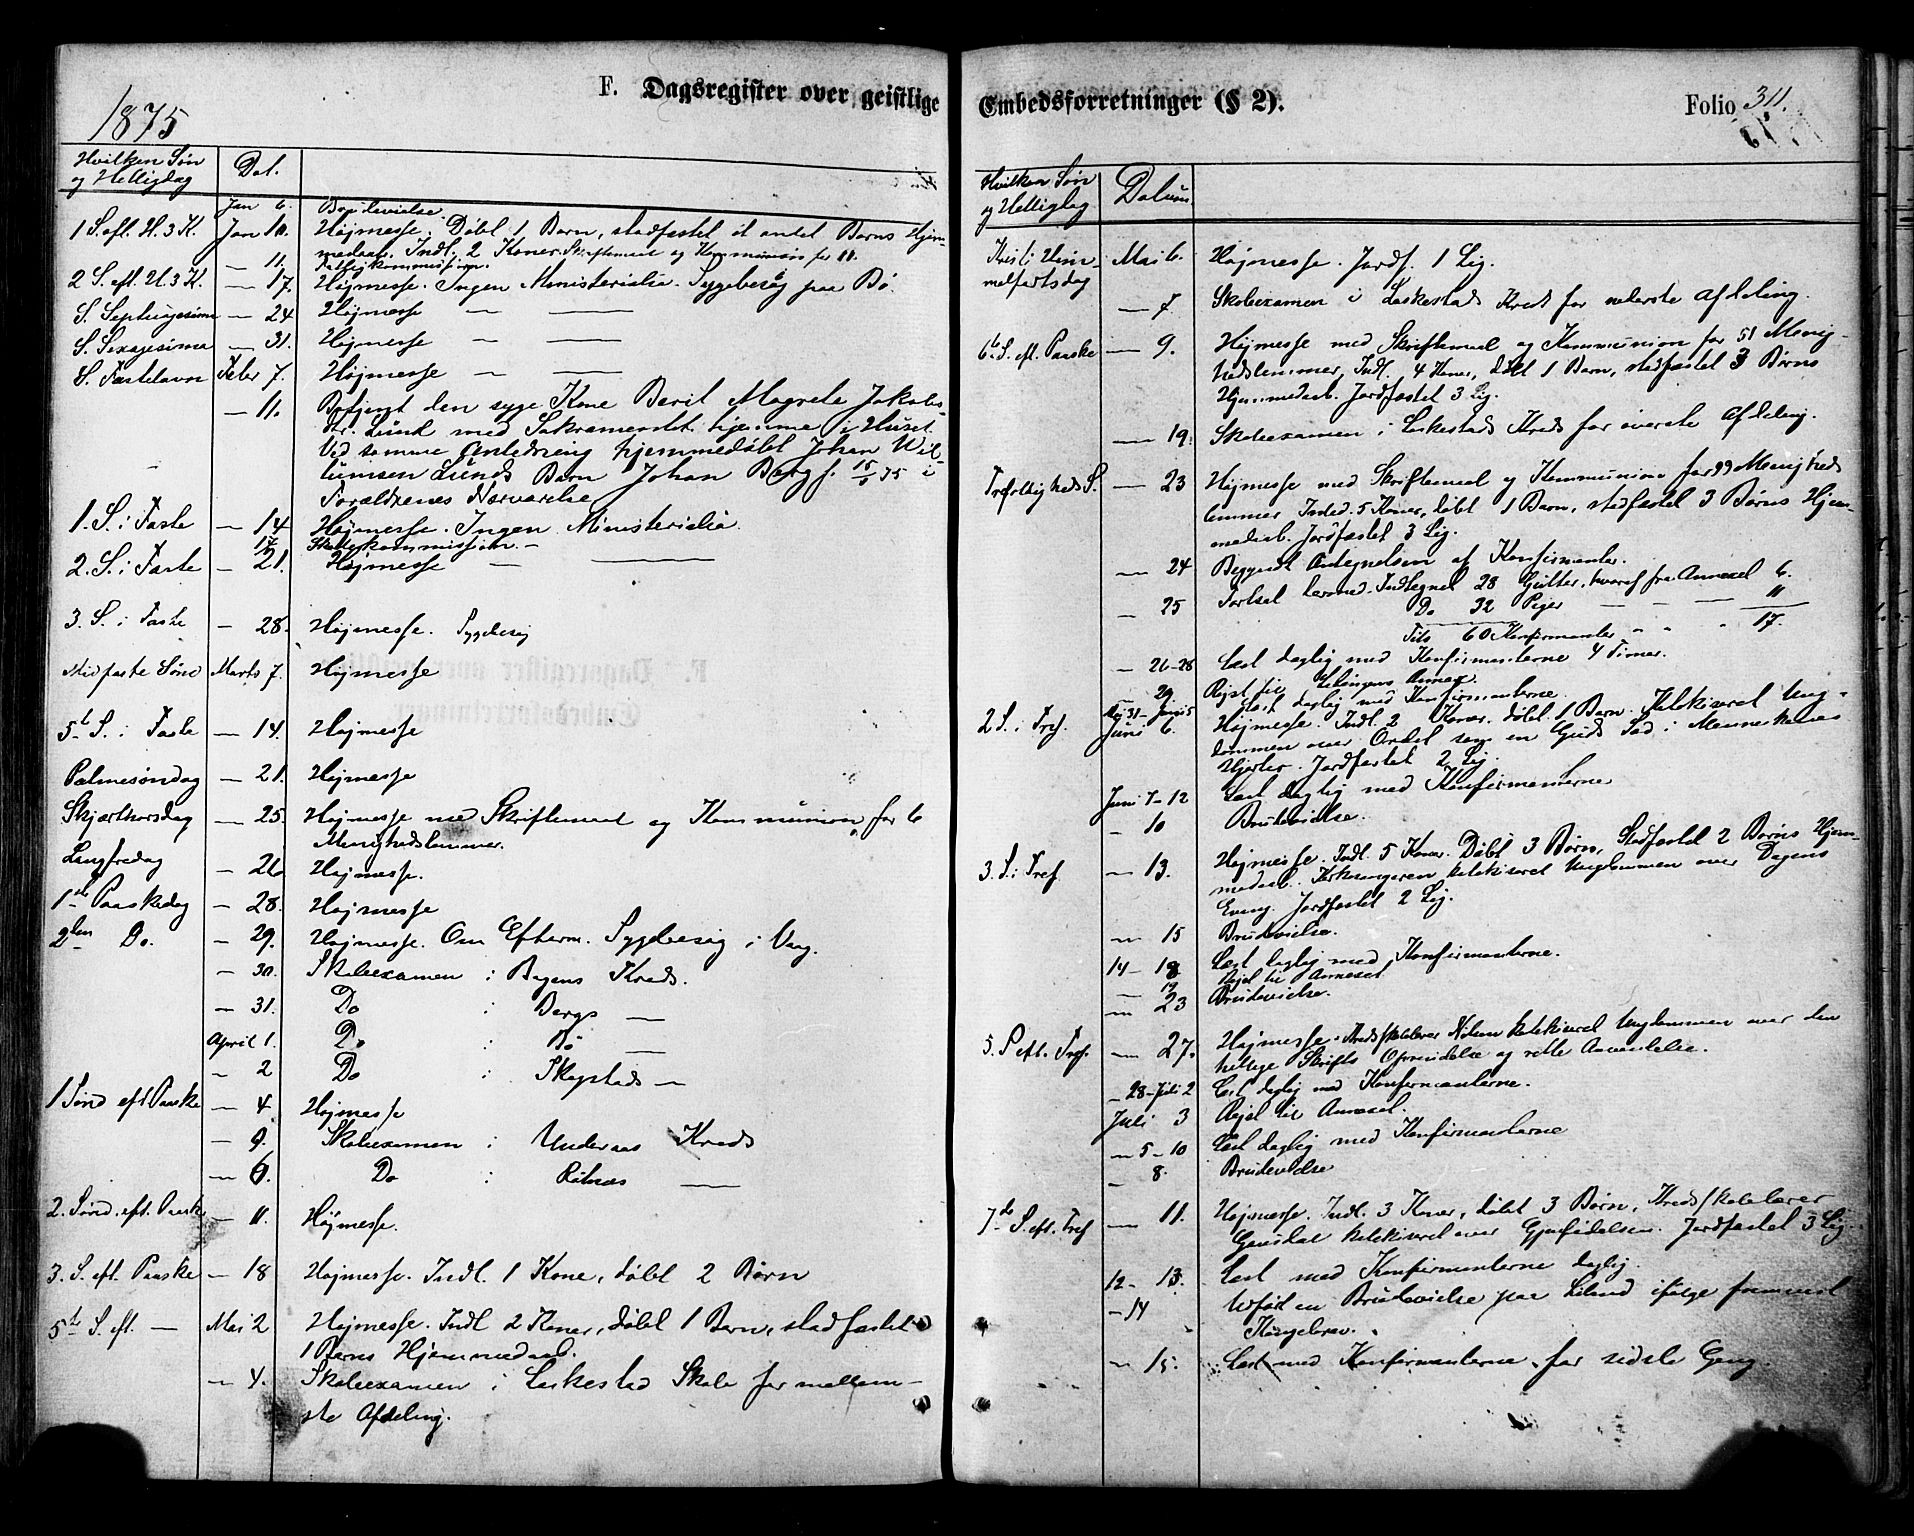 F. Dagsregister over geistlige
1875
Hvilken Søn
og Helligdag
Dat.
Jan 6. Brudevielse.
1 S. eft. H. 3 K. Jan 10. Højmesse. Døbt 1 Barn, stadfæstet et andet Barns Hjem-
medaab. Indl. 2 Koner. Skriftemaal og Kommunion for 11.
— 11.
2 S. eft. H. 3 K. — 17. Højmesse. Ingen Ministerialia. Sygebesøg paa Bø.
S. Septuagesima — 24 Højmesse — —
S. Sexagesima — 31. Højmesse — —
S. Fastelavn Feber 7. Højmesse — —
— 11. Betjent den syge Kone Berit Magrete Jakobs-
dtr. Lund med Sakramentet hjemme i Huset.
Ved samme Anledning hjemmedøbt Johan Wil-
lumsen Lunds Barn Johan Berg f. 75 i
Forældrenes Nærværelse
1. S. i Faste — 14 Højmesse. Ingen Ministerialia.
17 Skolekommission —
2. S. i Faste — 21. Højmesse — —
3. S. i Faste — 28. Højmesse. Sygebesøg
Midfaste Sønd Marts 7. Højmesse
5te S. i Faste — 14. Højmesse
Palmesøndag — 21. Højmesse
Skjærthorsdag — 25. Højmesse med Skriftemaal og Kommunion for 6
Menighedslemmer.
Langfredag — 26 Højmesse.
1ste Paaskedag — 28. Højmesse
2den Do. — 29. Højmesse. Om Efterm. Sygebesøg i Vaag.
— 30. Skoleexamen i Bogens Kreds.
— 31. Do i Bergs —
April 1. Do i Bø —
— 2 Do i Skagstads —
1 Sønd eft Paaske — 4. Højmesse
— 9. Skoleexamen i Underaas Kreds
— 6. Do i —
2. Sønd. eft. Paaske — 11. Højmesse.
3. S. eft. Paaske — 18 Højmesse. Indl. 1 Kone, døbt 2 Børn
5te S. eft. — Mai 2 Højmesse. Indl 2 Koner, døbt 1 Barn, stadfæstet
1 Barns Hjemmedaab.
— 4. Skoleexamen i Leskestad Skole for mellem-
ste Afdeling.
Embedsforretninger (§ 2).
Folio 311.
Hvilken Søn
og Helligdag
Datum
Kristi Him-
melfartsdag
Mai 6. Højmesse. Jordf. 1 Lig.
— 7 Skoleexamen i Leskestads Kreds for nederste Afdeling.
6te S. eft. Paaske — 9. Højmesse med Skriftemaal og Kommunion for 51 Menig-
hedslemmer, Indl. 4 Koner, døbt 1 Barn, stadfæstet 3 Børns
Hjemmedaab. Jordfæstet 3 Lig.
— 19. Skoleexamen i Leskestads Kreds for øverste Afdeling.
Trefoldigheds S. — 23 Højmesse med Skriftemaal og Kommunion for 99 Menigheds
lemmer Indled. 5 Koner, døbt 1 Barn, stadfæstet 3 Børns Hjem-
medaab. Jordfæstet 3 Lig.
— 24 Begyndt Antegnelsen af Konfirmanter.
— 25 Fortsat dermed. Indtegnet 28 Gutter, hvoraf fra Annexet 6.
Do 32 Piger — — — 11
Tils 60 Konfirmanter " " " 17.
— 26-28 Læst daglig med Konfirmanterne 4 Timer.
29 Rejst til Annex.
Mai 31 - Juni 5 Læst daglig med Konfirmanterne.
2 S. i Tref. Juni 6. Højmesse. Indl. 2 Koner. døbt 1 Barn. Katekiseret Ung-
dommen over Ordet som en Guds Sæd i Menneskenes
Hjerter. Jordfæstet 2 Lig.
Juni 7-12 Læst daglig med Konfirmanterne
— 10 Brudevielse.
3. S. i Tref — 13. Højmesse. Indl. 5 Koner. Døbt 3 Børn, Stadfæstet 2 Børns Hjem-
medaab. Kirkesangeren katekiseret Ungdommen over Dagens
Evang. Jordfæstet 2 Lig.
— 15 Brudevielse.
14 - 18 Læst daglig med Konfirmanterne.
— 19 Rejst til Annexet
— 23 Brudevielse.
5. S eft. Tref. — 27. Højmesse. Kredsskolelærer katekiseret Ungdommen over den
hellige Skrifts Oprindelse og rette Anvendelse.
— 28 - Juli 2 Læst daglig med Konfirmanterne.
Juli 3 Rejst til Annexet.
— 5-10 Læst daglig med Konfirmanterne
— 8. Brudevielse
7de S. eft. Tref — 11. Højmesse. Indl. 3 Koner, døbt 3 Børn, Kredsskolelærer
katekiseret over Gjenfødelsen. Jordfæstet 3 Lig.
12 - 13. Læst med Konfirmanterne daglig.
— 14 Udført en Brudevielse paa Liland ifølge fremvist
Kongebrev.
— 15. Læst med Konfirmanterne for sidste Gang.